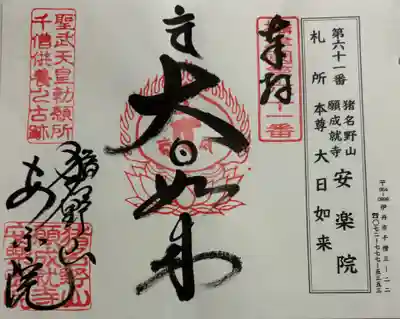 第六十一番
札所
猪名野山
願成就寺
安楽院
本尊 大日如来
伊丹市千僧三ー二二
奉拝
大日如来
聖武天皇勅願所
千僧供養之古跡
猪名野山
安楽院